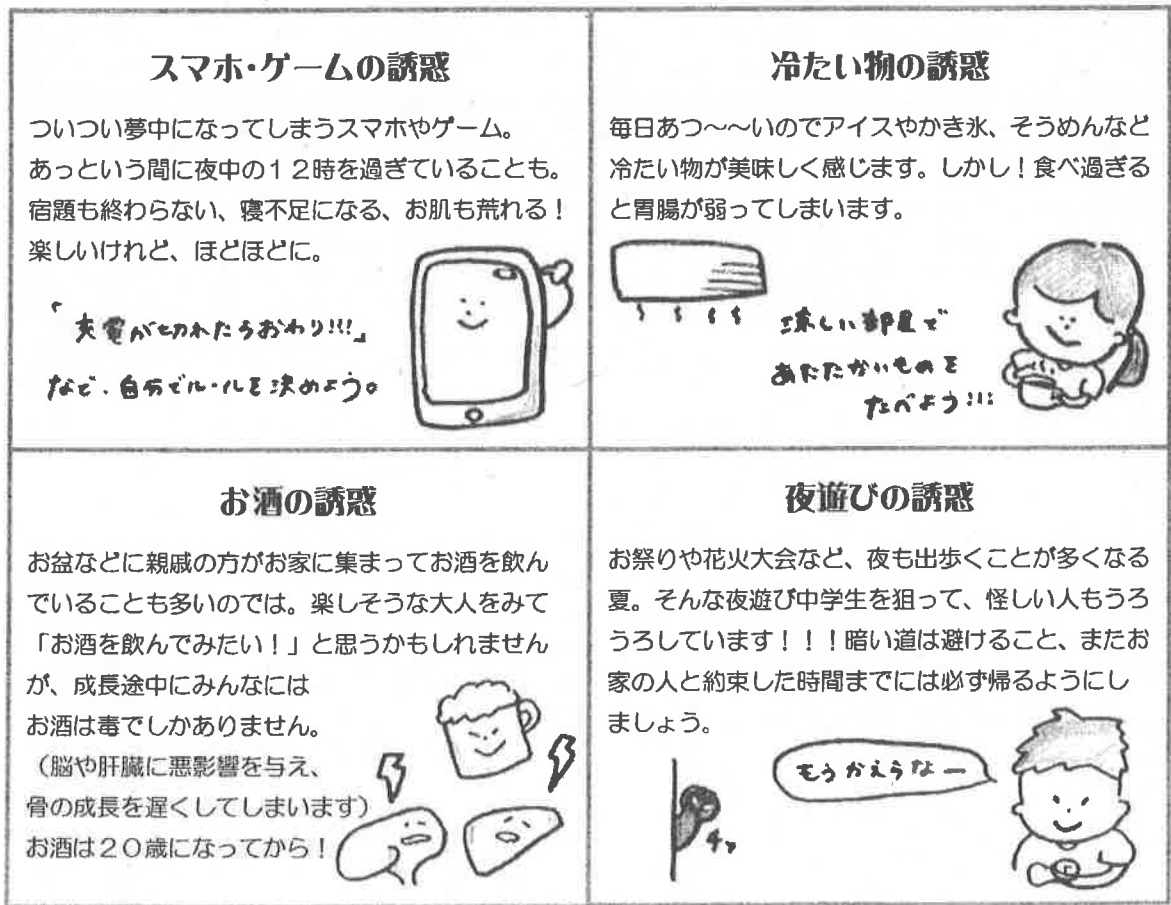 スマホ・ゲームの誘惑
ついつい夢中になってしまうスマホやゲーム。
あっという間に夜中の１２時を過ぎていることも。
宿題も終わらない、寝不足になる、お肌も荒れる！
楽しいけれど、ほどほどに。
「充電が切れたらおわり!!!」
など、自分でルールを決めよう。
冷たい物の誘惑
毎日あつ～～いのでアイスやかき氷、そうめんなど
冷たい物が美味しく感じます。しかし！食べ過ぎる
と胃腸が弱ってしまいます。
涼しい部屋で
あたたかいものを
たべよう!!!
お酒の誘惑
お盆などに親戚の方がお家に集まってお酒を飲ん
でいることも多いのでは。楽しそうな大人をみて
「お酒を飲んでみたい！」と思うかもしれません
が、成長途中にみんなには
お酒は毒でしかありません。
（脳や肝臓に悪影響を与え、
骨の成長を遅くしてしまいます）
お酒は２０歳になってから！
夜遊びの誘惑
お祭りや花火大会など、夜も出歩くことが多くなる
夏。そんな夜遊び中学生を狙って、怪しい人もうろ
うろしています！！！暗い道は避けること、またお
家の人と約束した時間までには必ず帰るようにし
ましょう。
もうかえらなー
チッ